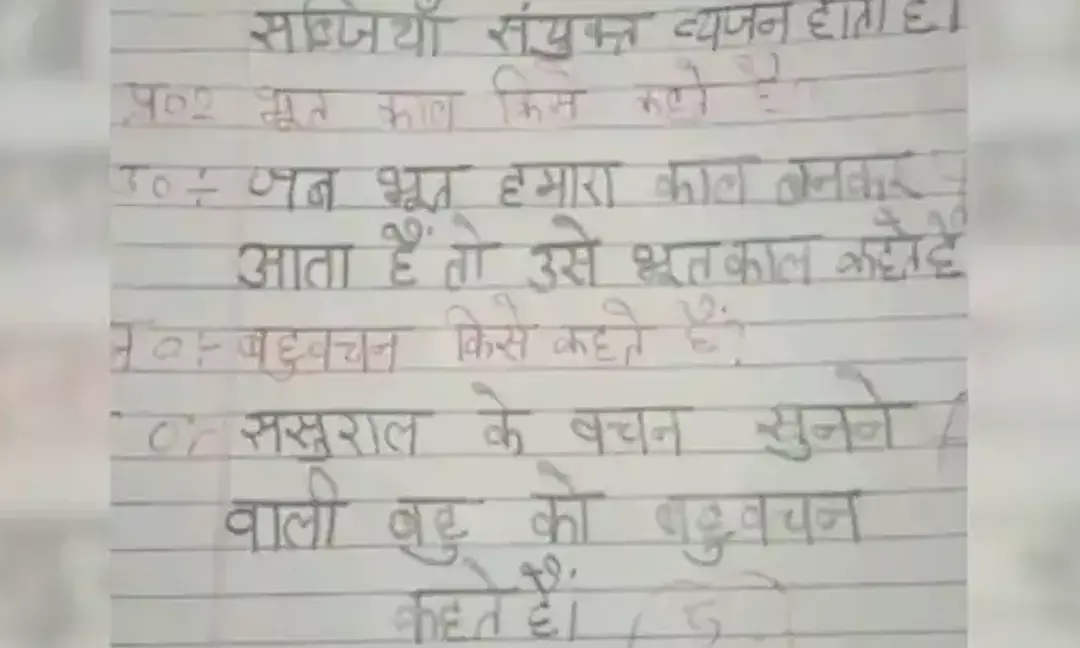 सब्जियाँ संयुक्त व्यजन होता है।
प्र०२ भूत काल किसे कहते है
उ०÷ जब भूत हमारा काल बनकर
आता हैं तो उसे भूतकाल कहते है
०÷ बहुवचन किसे कहते हैं?
ससुराल के वचन सुनने
वाली बहु को बहुवचन
कहते हैं।